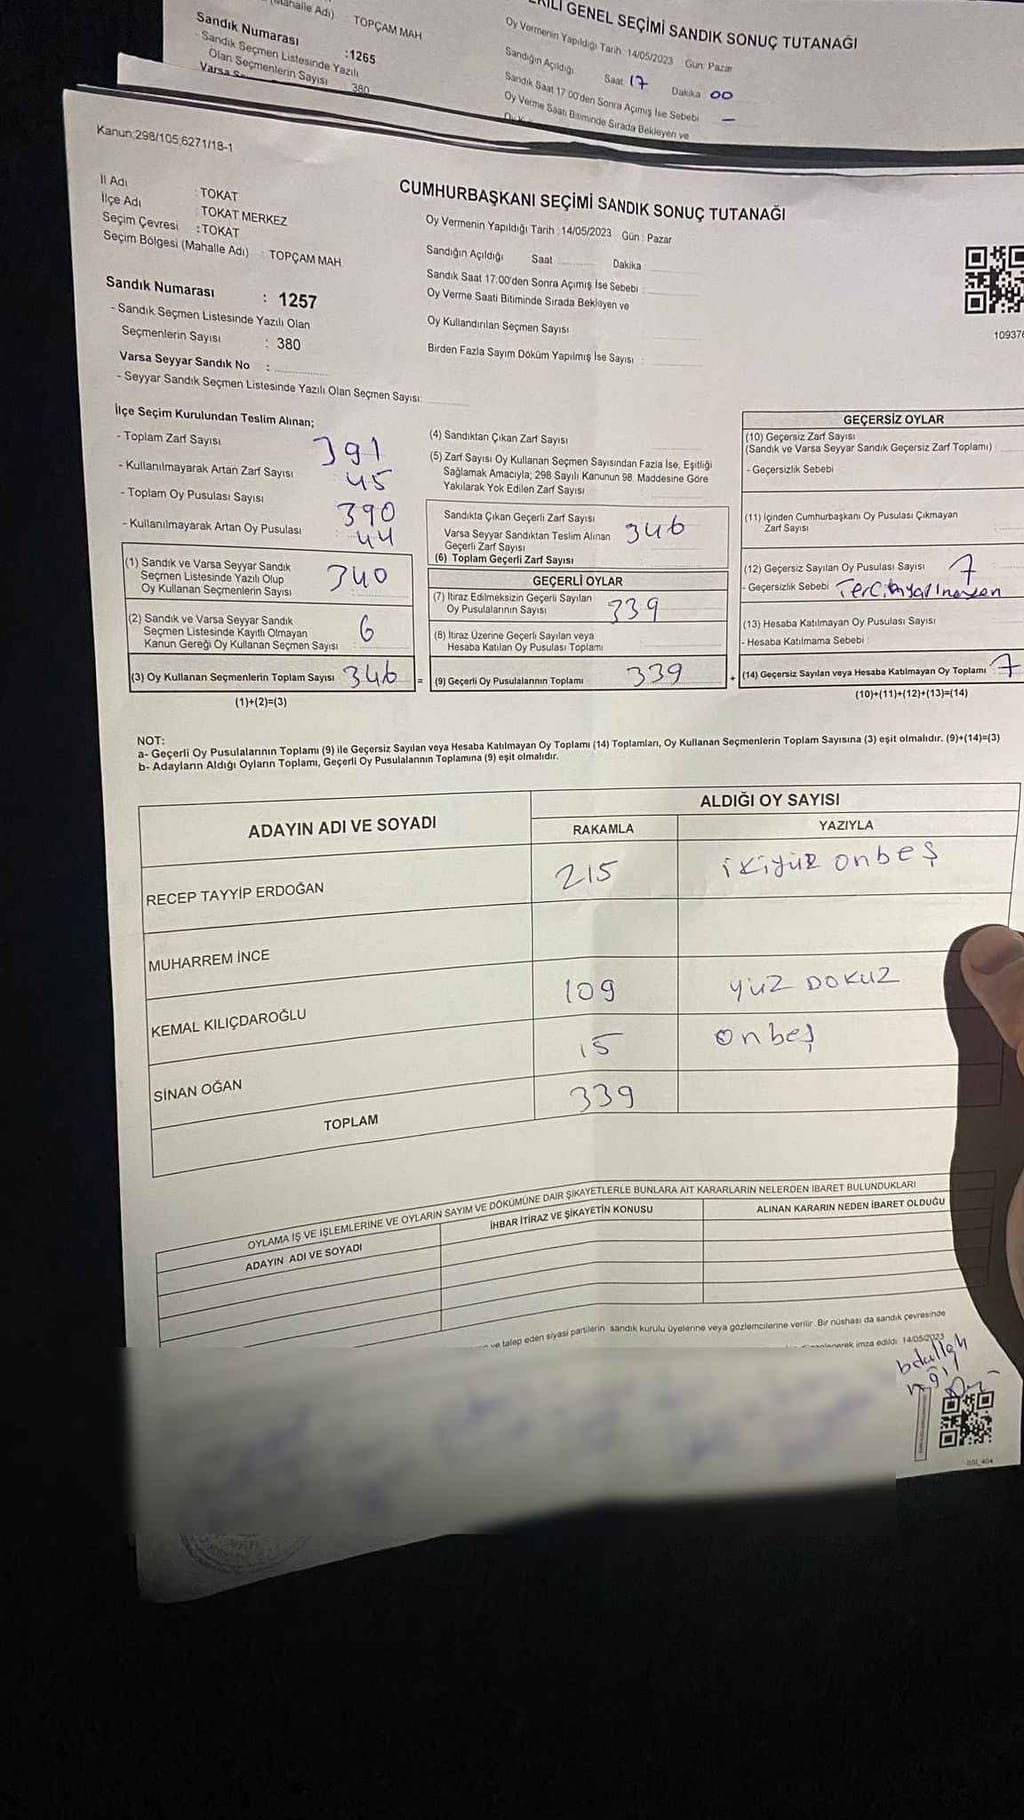 (Mahalle Adı) TOPÇAM MAH
Sandık Numarası :1265
- Sandık Seçmen Listesinde Yazılı
Olan Seçmenlerin Sayısı 380
GENEL SEÇİMİ SANDIK SONUÇ TUTANAĞI
Oy Vermenin Yapıldığı Tarih: 14/05/2023 Gün: Pazar
Sandığın Açıldığı Saat 17 Dakika 00
Sandık Saat 17:00'den Sonra Açımış İse Sebebi —
Oy Verme Saati Bitiminde Sırada Bekleyen ve
Kanun:298/105,6271/18-1
İl Adı : TOKAT
İlçe Adı : TOKAT MERKEZ
Seçim Çevresi : TOKAT
Seçim Bölgesi (Mahalle Adı) : TOPÇAM MAH
Sandık Numarası : 1257
- Sandık Seçmen Listesinde Yazılı Olan
Seçmenlerin Sayısı : 380
Varsa Seyyar Sandık No :
- Seyyar Sandık Seçmen Listesinde Yazılı Olan Seçmen Sayısı:
CUMHURBAŞKANI SEÇİMİ SANDIK SONUÇ TUTANAĞI
Oy Vermenin Yapıldığı Tarih : 14/05/2023 Gün : Pazar
Sandığın Açıldığı Saat Dakika :
Sandık Saat 17:00'den Sonra Açımış İse Sebebi :
Oy Verme Saati Bitiminde Sırada Bekleyen ve
Oy Kullandırılan Seçmen Sayısı
Birden Fazla Sayım Döküm Yapılmış İse Sayısı
109376
İlçe Seçim Kurulundan Teslim Alınan;
- Toplam Zarf Sayısı 391
- Kullanılmayarak Artan Zarf Sayısı 45
- Toplam Oy Pusulası Sayısı 390
- Kullanılmayarak Artan Oy Pusulası 44
(1) Sandık ve Varsa Seyyar Sandık
Seçmen Listesinde Yazılı Olup
Oy Kullanan Seçmenlerin Sayısı 340
(2) Sandık ve Varsa Seyyar Sandık
Seçmen Listesinde Kayıtlı Olmayan
Kanun Gereği Oy Kullanan Seçmen Sayısı 6
(3) Oy Kullanan Seçmenlerin Toplam Sayısı 346 =
(1)+(2)=(3)
(4) Sandıktan Çıkan Zarf Sayısı
(5) Zarf Sayısı Oy Kullanan Seçmen Sayısından Fazla İse, Eşitliği
Sağlamak Amacıyla; 298 Sayılı Kanunun 98. Maddesine Göre
Yakılarak Yok Edilen Zarf Sayısı
Sandıkta Çıkan Geçerli Zarf Sayısı
Varsa Seyyar Sandıktan Teslim Alınan
Geçerli Zarf Sayısı
(6) Toplam Geçerli Zarf Sayısı 346
GEÇERLİ OYLAR
(7) İtiraz Edilmeksizin Geçerli Sayılan
Oy Pusulalarının Sayısı 339
(8) İtiraz Üzerine Geçerli Sayılan veya
Hesaba Katılan Oy Pusulası Toplamı
(9) Geçerli Oy Pusulalarının Toplamı 339 +
GEÇERSİZ OYLAR
(10) Geçersiz Zarf Sayısı
(Sandık ve Varsa Seyyar Sandık Geçersiz Zarf Toplamı)
- Geçersizlik Sebebi
(11) İçinden Cumhurbaşkanı Oy Pusulası Çıkmayan
Zarf Sayısı
(12) Geçersiz Sayılan Oy Pusulası Sayısı 7
- Geçersizlik Sebebi
(13) Hesaba Katılmayan Oy Pusulası Sayısı
- Hesaba Katılmama Sebebi :
(14) Geçersiz Sayılan veya Hesaba Katılmayan Oy Toplamı 7
(10)+(11)+(12)+(13)=(14)
NOT:
a- Geçerli Oy Pusulalarının Toplamı (9) ile Geçersiz Sayılan veya Hesaba Katılmayan Oy Toplamı (14) Toplamları, Oy Kullanan Seçmenlerin Toplam Sayısına (3) eşit olmalıdır. (9)+(14)=(3)
b- Adayların Aldığı Oyların Toplamı, Geçerli Oy Pusulalarının Toplamına (9) eşit olmalıdır.
ADAYIN ADI VE SOYADI
ALDIĞI OY SAYISI
RAKAMLA YAZIYLA
RECEP TAYYİP ERDOĞAN 215 ikiyüz onbeş
MUHARREM İNCE
KEMAL KILIÇDAROĞLU 109 yüz DOKUZ
SİNAN OĞAN 15 onbeş
TOPLAM 339
OYLAMA İŞ VE İŞLEMLERİNE VE OYLARIN SAYIM VE DÖKÜMÜNE DAİR ŞİKAYETLERLE BUNLARA AİT KARARLARIN NELERDEN İBARET BULUNDUKLARI
ADAYIN ADI VE SOYADI İHBAR İTİRAZ VE ŞİKAYETİN KONUSU ALINAN KARARIN NEDEN İBARET OLDUĞU
ve talep eden siyasi partilerin sandık kurulu üyelerine veya gözlemcilerine verilir. Bir nüshası da sandık çevresinde
imza edildi. 14/05/2023